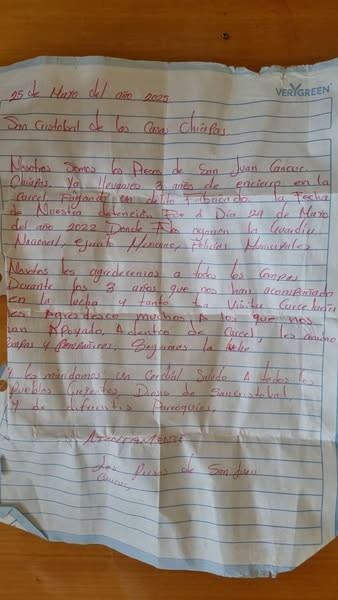 VERYGREEN
25 de Mayo del año 2025
San Cristobal de las Casas Chiapas
Nosotros Somos los Presos de San Juan Cancuc
Chiapas, Ya llevamos 3 años de encierro en la
Carcel Pagando un delito Fabricado. la Fecha
de Nuestra detención Fue el Dia 24 de Mayo
del año 2022 Donde Nos la Guardia
Nacional, ejercito Mexicano, Policias Municipales
Nosotros les agradecemos a todos los
Durante los 3 años que nos han acompañado
en la lucha y tanto la Visita
les Agradesco muchos A los que nos
han Apoyado, Adentro de Carcel, les
y Seguimos la
Y les mandamos un Cordial Saludo A todos los
Pueblos Creyentes, de San cristobal
Y de diferentes Parroquias.
ATENTAMENTE
Los Presos de San Juan
Cancuc